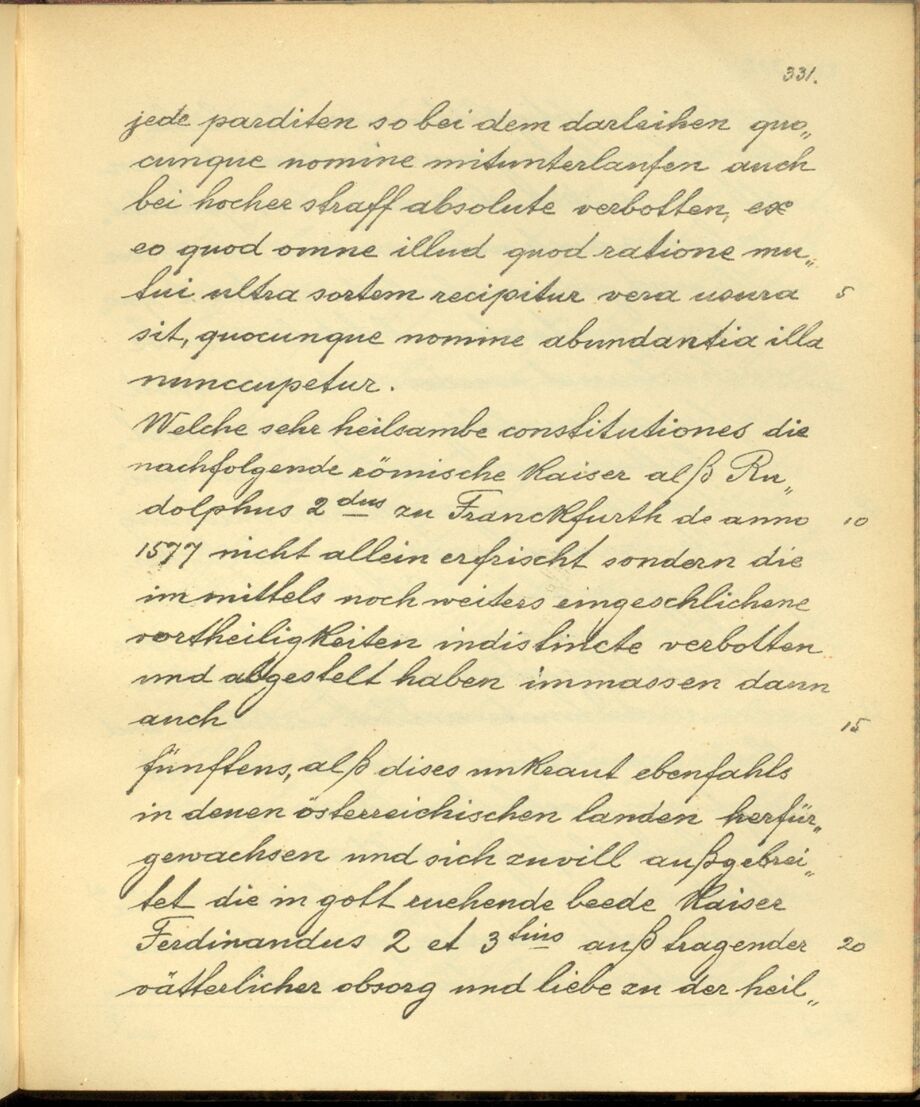 331.
jede parditen so bei dem darleihen quo„
cunque nomine mitunterlaufen auch
bei hocher straff absolute verbotten, ex
eo quod omne illud quod ratione mu„
tui ultra sortem recipitur vera usura 5
sit, quocunque nomine abundantia illa
nunccupetur.
Welche sehr heilsambe constitutiones die
nachfolgende römische Kaiser alß Ru„
dolphus 2dus zu Franckfurth de anno 10
1577 nicht allein erfrischt sondern die
immittels noch weiters eingeschlichene
vortheiligkeiten indistincte verbotten
und abgestelt haben immassen dann
auch 15
fünftens, alß dises unkraut ebenfahls
in denen österreichischen landen herfür„
gewachsen und sich zuvill außgebrei„
tet die in gott ruchende beede Kaiser
Ferdinandus 2 et 3tius auß tragender 20
vätterlicher obsorg und liebe zu der heil„